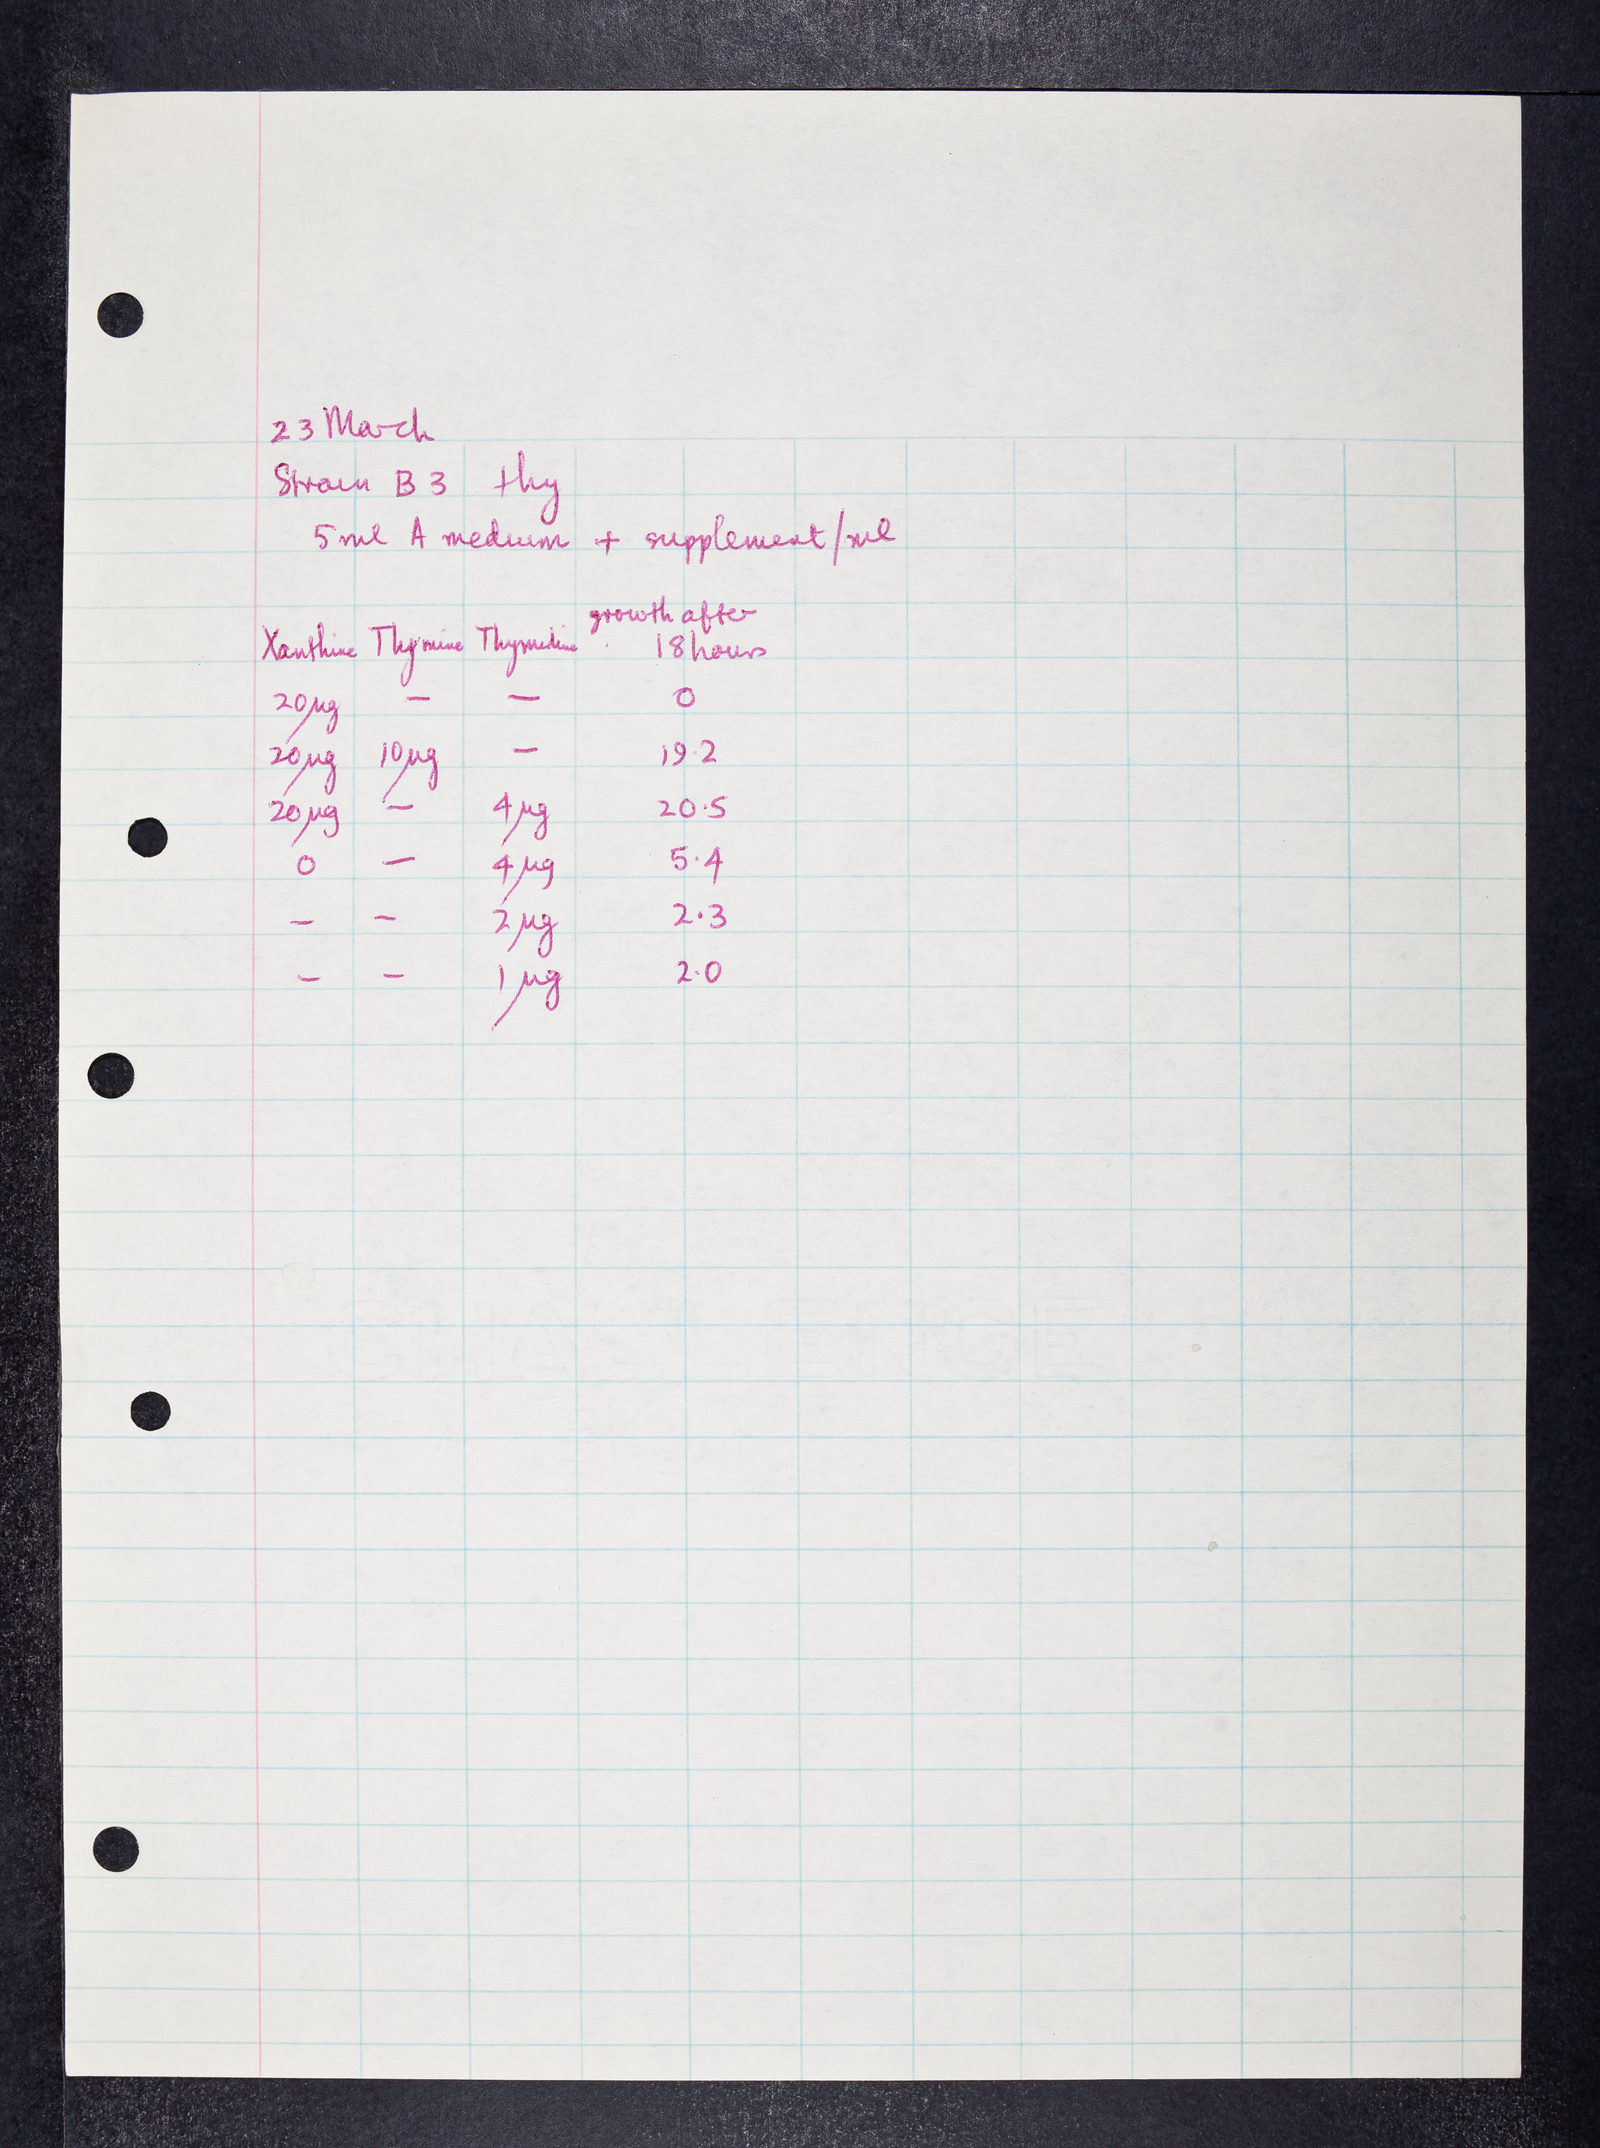 23 March
Strain B3 thy
5 ml A medium + supplement/ml
growth after
Xanthine Thymine Thymidine 18 hours
20 µg — — 0
20 µg 10 µg — 19.2
20 µg — 4 µg 20.5
0 — 4 µg 5.4
— — 2 µg 2.3
— — 1 µg 2.0